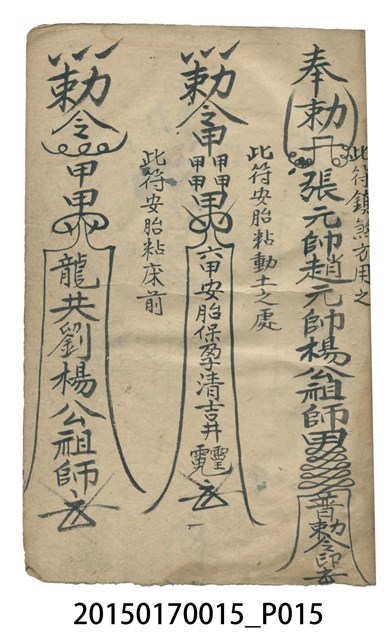 奉勅
張元帥趙元帥楊公祖師
勅令印
此符鎮煞方用之
勅令
甲
甲甲
甲甲
甲
六甲安胎保孕清吉井
此符安胎粘動土之處
勅令
甲甲
龍共劉楊公祖師
此符安胎粘床前
20150170015_P015